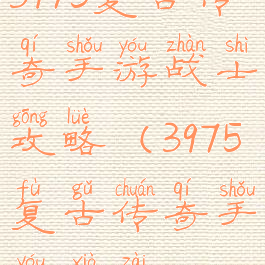 3975复古传
qí shǒu yóu zhàn shì
奇手游战士
gōng lüè
攻略(3975
fù gǔ chuán qí shǒu
复古传奇手
yóu xià zài